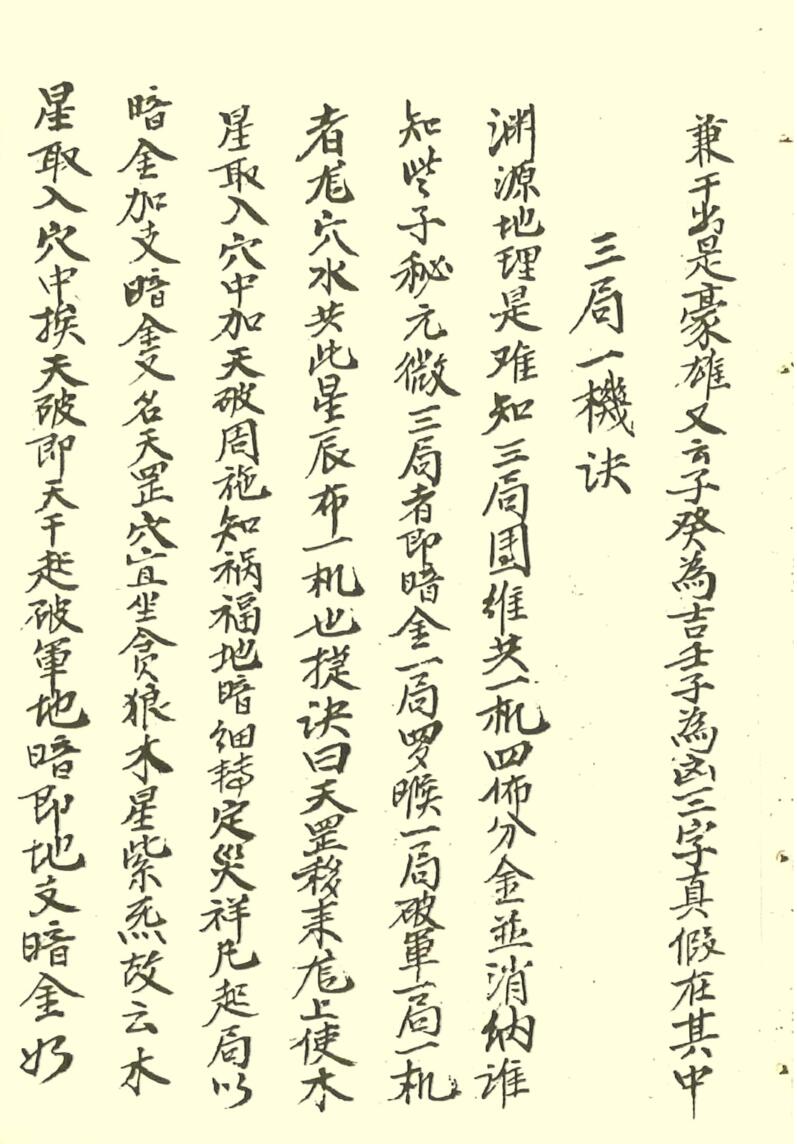 兼干出是豪雄又云子癸為吉壬子為凶三字真假在其中
三局一機诀
渊源地理是难知三局團维共一机四佈分金並消納谁
知些子秘元微三局者即暗金一局罗睺一局破軍一局一机
者龙穴水共此星辰布一机也提诀曰天罡移来龙上使木
星取入穴中加天破周施知祸福地暗细轉定災祥凡起局以
暗金加支暗金又名天罡穴宜坐贪狼木星紫炁故云木
星取入穴中挨天破即天干起破軍地暗即地支暗金如